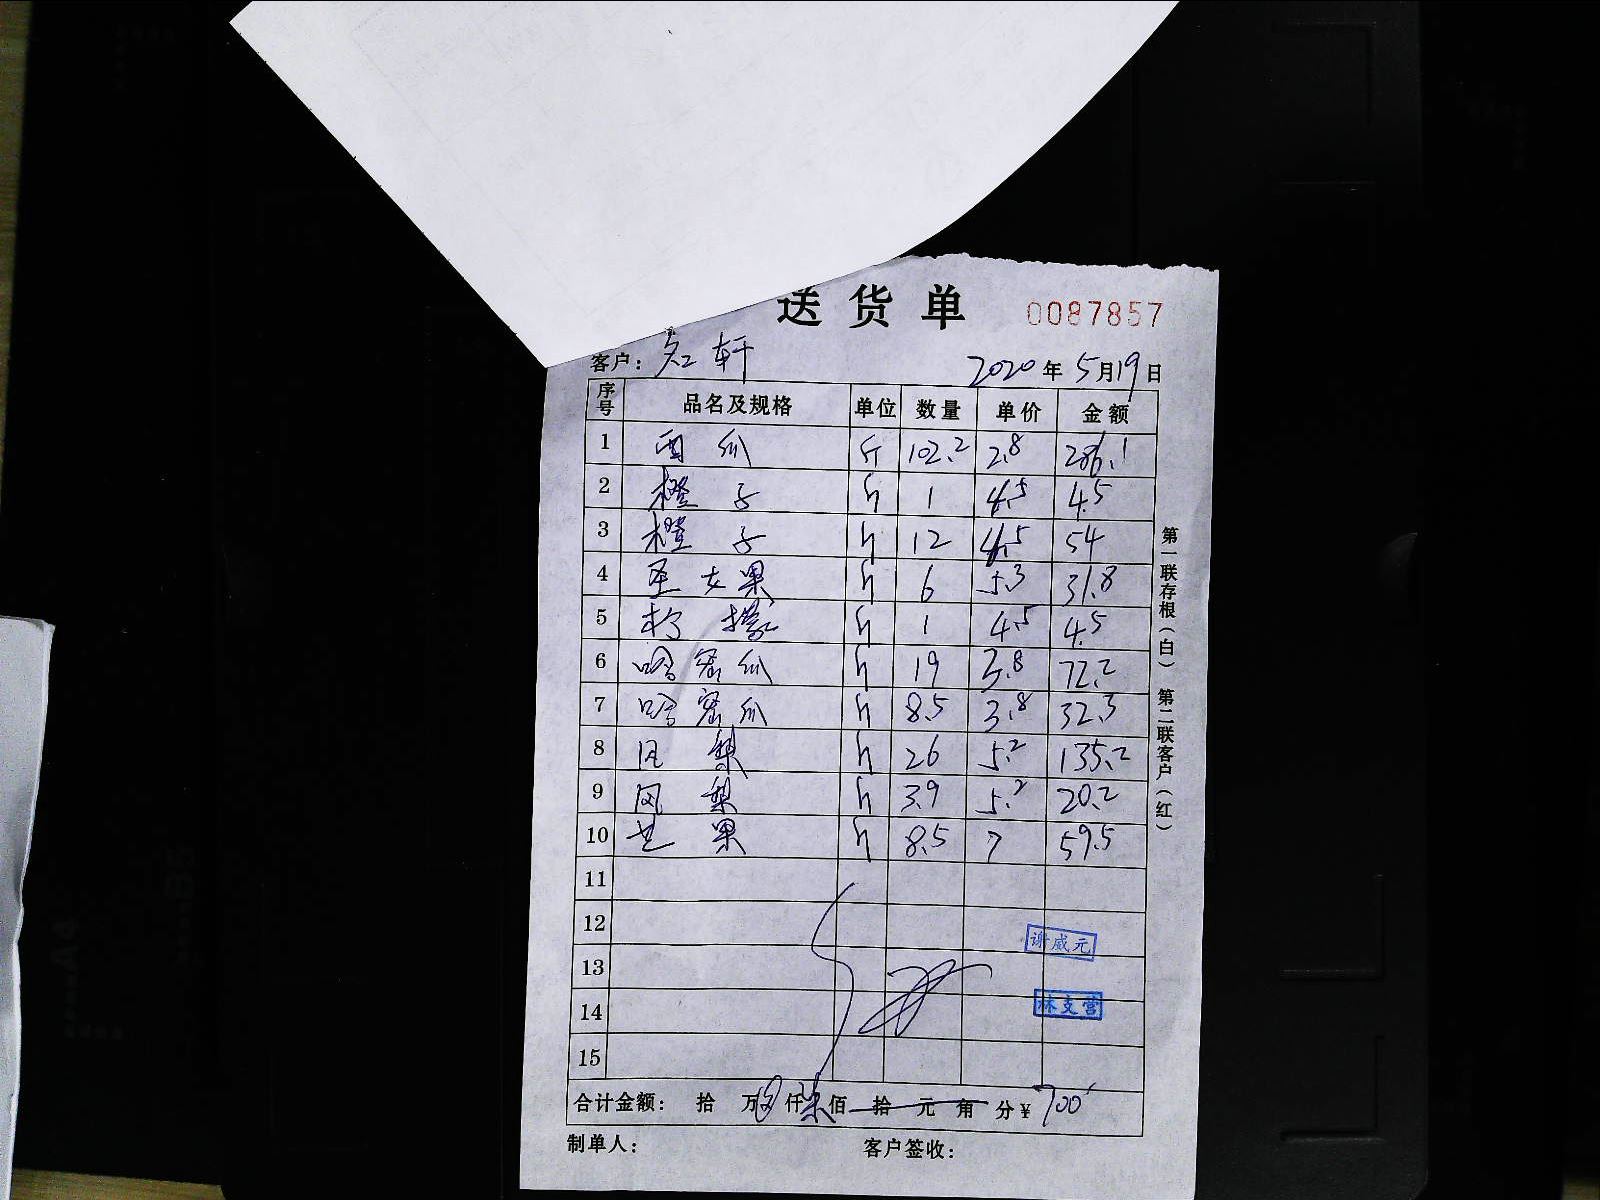 送货单 0087857
客户: 轩 2020年5月19日
序号 品名及规格 单位 数量 单价 金额
1 西瓜 斤 102.2 2.8 286.1
2 橙子 斤 1 4.5 4.5
3 橙子 斤 12 4.5 54
4 圣女果 斤 6 5.3 31.8
5 柠檬 斤 1 4.5 4.5
6 哈密瓜 斤 19 3.8 72.2
7 哈密瓜 斤 8.5 3.8 32.3
8 凤梨 斤 26 5.2 135.2
9 凤梨 斤 3.9 5.2 20.2
10 芒果 斤 8.5 7 59.5
11
12
谢威元
13
14
林支营
15
合计金额: 拾 万 仟柒佰 拾 元 角 分¥700
制单人: 客户签收:
第一联存根(白) 第二联客户(红)